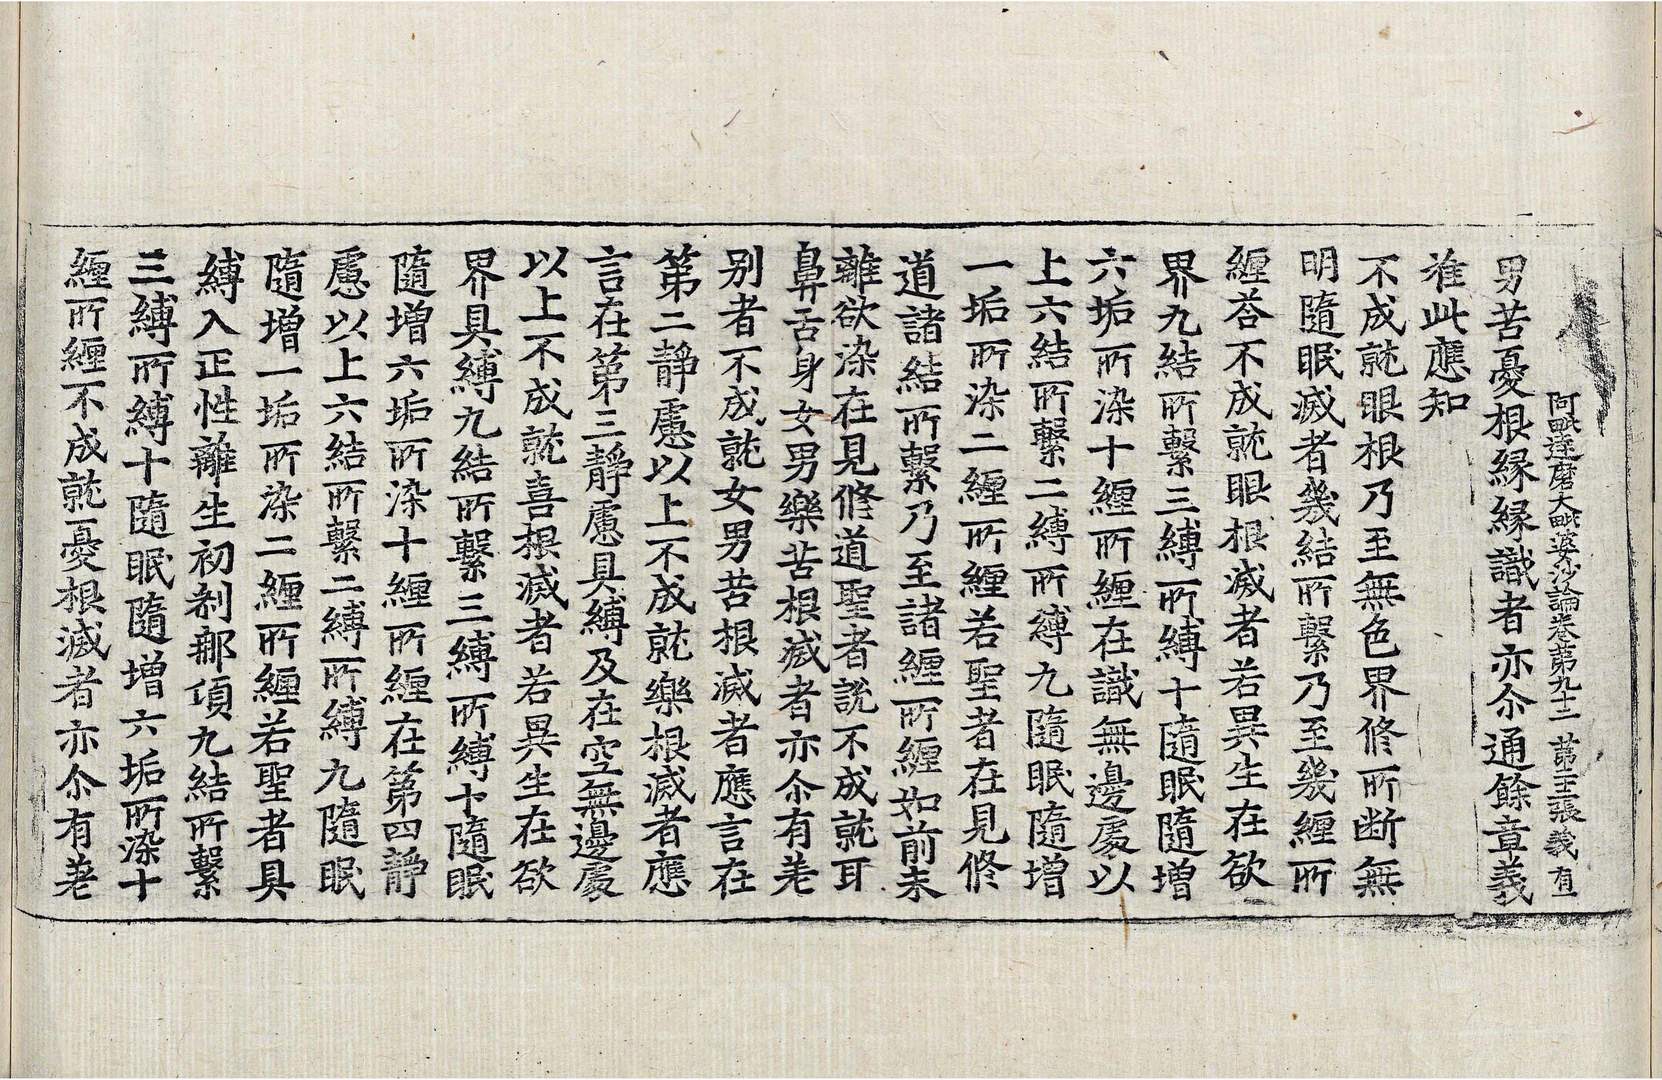 阿毗達磨大毗婆沙論卷苐九十二 苐三張 義 有一
男苦憂根緣緣識者亦尒通餘章義
准此應知
不成就眼根乃至無色界修所断無
明隨眠滅者幾結所繫乃至幾纏所
纏荅不成就眼根滅者若異生在欲
界九結所繫三縛所縛十隨眠隨增
六垢所染十纏所纏在識無邊處以
上六結所繫二縛所縛九隨眠隨增
一垢所染二纏所纏若聖者在見修
道諸結所繫乃至諸纏所纏如前未
離欲染在見修道聖者說不成就耳
鼻舌身女男樂苦根滅者亦尒有差
別者不成就女男苦根滅者應言在
第二靜慮以上不成就樂根滅者應
言在第三靜慮具縛及在空無邊處
以上不成就喜根滅者若異生在欲
界具縛九結所繫三縛所縛十隨眠
隨增六垢所染十纏所纏在第四靜
慮以上六結所繫二縛所縛九隨眠
隨增一垢所染二纏所纏若聖者具
縛入正性離生初刹那頃九結所繫
三縛所縛十隨眠隨增六垢所染十
纏所纏不成就憂根滅者亦尒有差